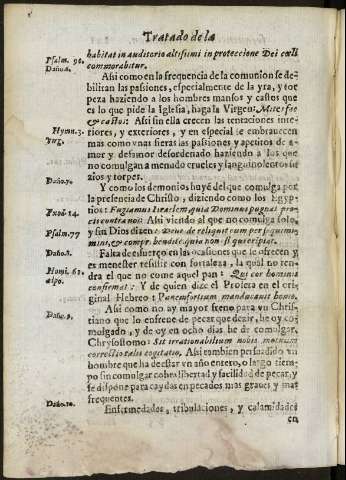 Tratado de la
habitat in auditorio altissimi in proteccione Dei cœli
Psalm. 90.
Daño.6.
commorabitur.
Asi como en la frequencia de la comunion se de-
bilitan las pasiones, especialmente de la yra, y tor
peza haziendo a los hombres mansos y castos que
es lo que pide la Iglesia, haga la Virgen: Mites fac
& castos: Asi sin ella crecen las tentaciones inte
Hymn.3.
Virg.
riores, y exteriores, y en especial se embrauecen
mas como vnas fieras las pasiones y apetitos de a-
mor y desamor desordenado haziendo a los que
no comulgan a menudo crueles y languinolentos su
zios y torpes.
Daño.7.
Y como los demonios huyē del que comulga por
la presencia de Christo, diziendo como los Egyp-
Exod. 14.
tios: Fugiamus Israelem quia Dominus pugnat pro
eis contra nos: Asi viendo al que no comulga solo
y sin Dios dizen: Deus dereliquit eum persequimi
Psalm.77
mini, & compr. hendite quia non est qui eripiat.
Daño.8.
Falta de esfuerço en las ocasiones que se ofrecen y
es menester resistir con fortaleza, la qual no ten
Homi. 61.
dra el que no come aquel pan: Qui cor hominis
confirmat: Y de quien dize el Profeta en el ori
ginal Hebreo: Panem fortium manducauit homo.
Daño.9.
Asi como no ay mayor freno para vn Chris-
tiano que lo enfrene de pecar que dezir, he oy co
mulgado, y de oy en ocho dias he de comulgar,
Chrysostomo: Sit irrationabilium nobis motuum
correctio talis cogitatio, Asi tambien persuadido vn
hombre que ha de estar vn año entero, o largo tiem-
po sin comulgar cobra libertad y facilidad de pecar, y
se dispone para caydas en pecados mas graues y mas
frequentes.
Daño.10.
Enfermedades, tribulaciones, y calamidades
en